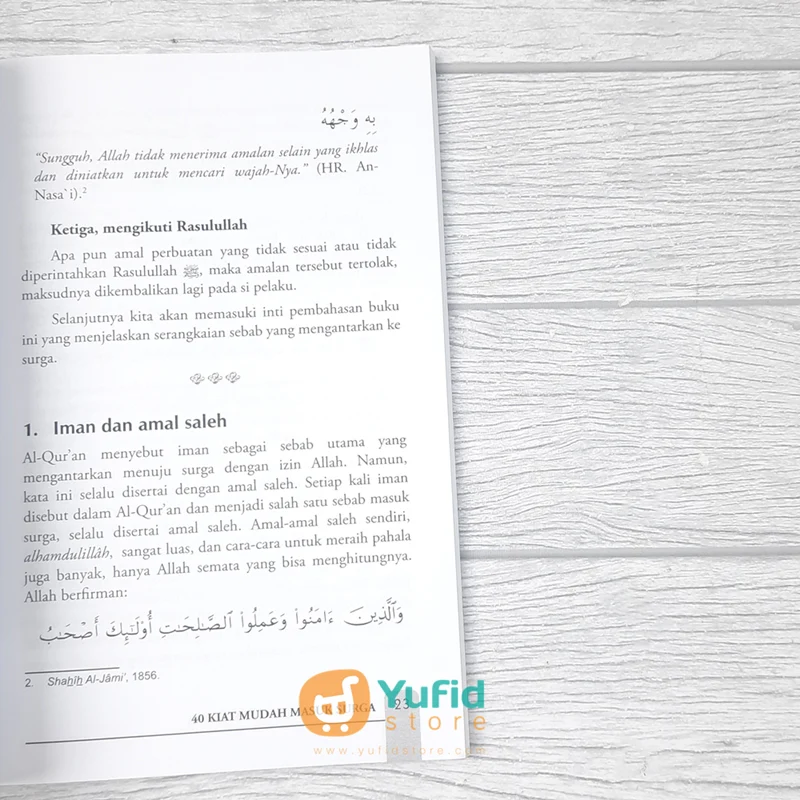 بِهِ وَجْهُهُ
“Sungguh, Allah tidak menerima amalan selain yang ikhlas
dan diniatkan untuk mencari wajah-Nya.” (HR. An-
Nasa`i).²
Ketiga, mengikuti Rasulullah
Apa pun amal perbuatan yang tidak sesuai atau tidak
diperintahkan Rasulullah ﷺ, maka amalan tersebut tertolak,
maksudnya dikembalikan lagi pada si pelaku.
Selanjutnya kita akan memasuki inti pembahasan buku
ini yang menjelaskan serangkaian sebab yang mengantarkan ke
surga.
1. Iman dan amal saleh
Al-Qur’an menyebut iman sebagai sebab utama yang
mengantarkan menuju surga dengan izin Allah. Namun,
kata ini selalu disertai dengan amal saleh. Setiap kali iman
disebut dalam Al-Qur’an dan menjadi salah satu sebab masuk
surga, selalu disertai amal saleh. Amal-amal saleh sendiri,
alhamdulillâh, sangat luas, dan cara-cara untuk meraih pahala
juga banyak, hanya Allah semata yang bisa menghitungnya.
Allah berfirman:
وَٱلَّذِينَ ءَامَنُوا۟ وَعَمِلُوا۟ ٱلصَّـٰلِحَـٰتِ أُو۟لَـٰٓئِكَ أَصْحَـٰبُ
2. Shahîh Al-Jâmi’, 1856.
40 KIAT MUDAH MASUK SURGA 23
Yufid
store
www.yufidstore.com